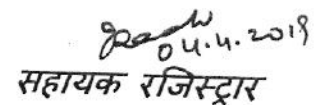 04.4.2019
सहायक रजिस्ट्रार